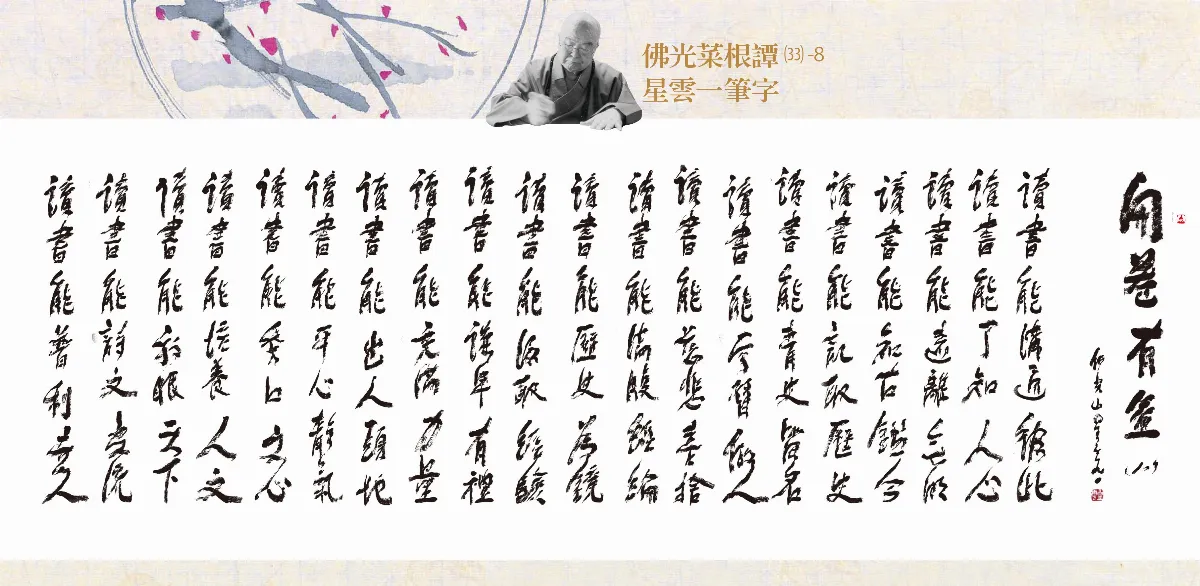 佛光菜根譚 (33) -8
星雲一筆字
開卷有益 (八)
佛光山星雲
讀書能溝通彼此
讀書能了知人心
讀書能遠離無明
讀書能知古鑑今
讀書能記取歷史
讀書能青史留名
讀書能做人
讀書能慈悲喜捨
讀書能滿腹經綸
讀書能歷史為鏡
讀書能汲取經驗
讀書能謙卑有禮
讀書能充滿力量
讀書能出人頭地
讀書能平心靜氣
讀書能口文心
讀書能培養人文
讀書能放眼天下
讀書能詩文交流
讀書能普利人